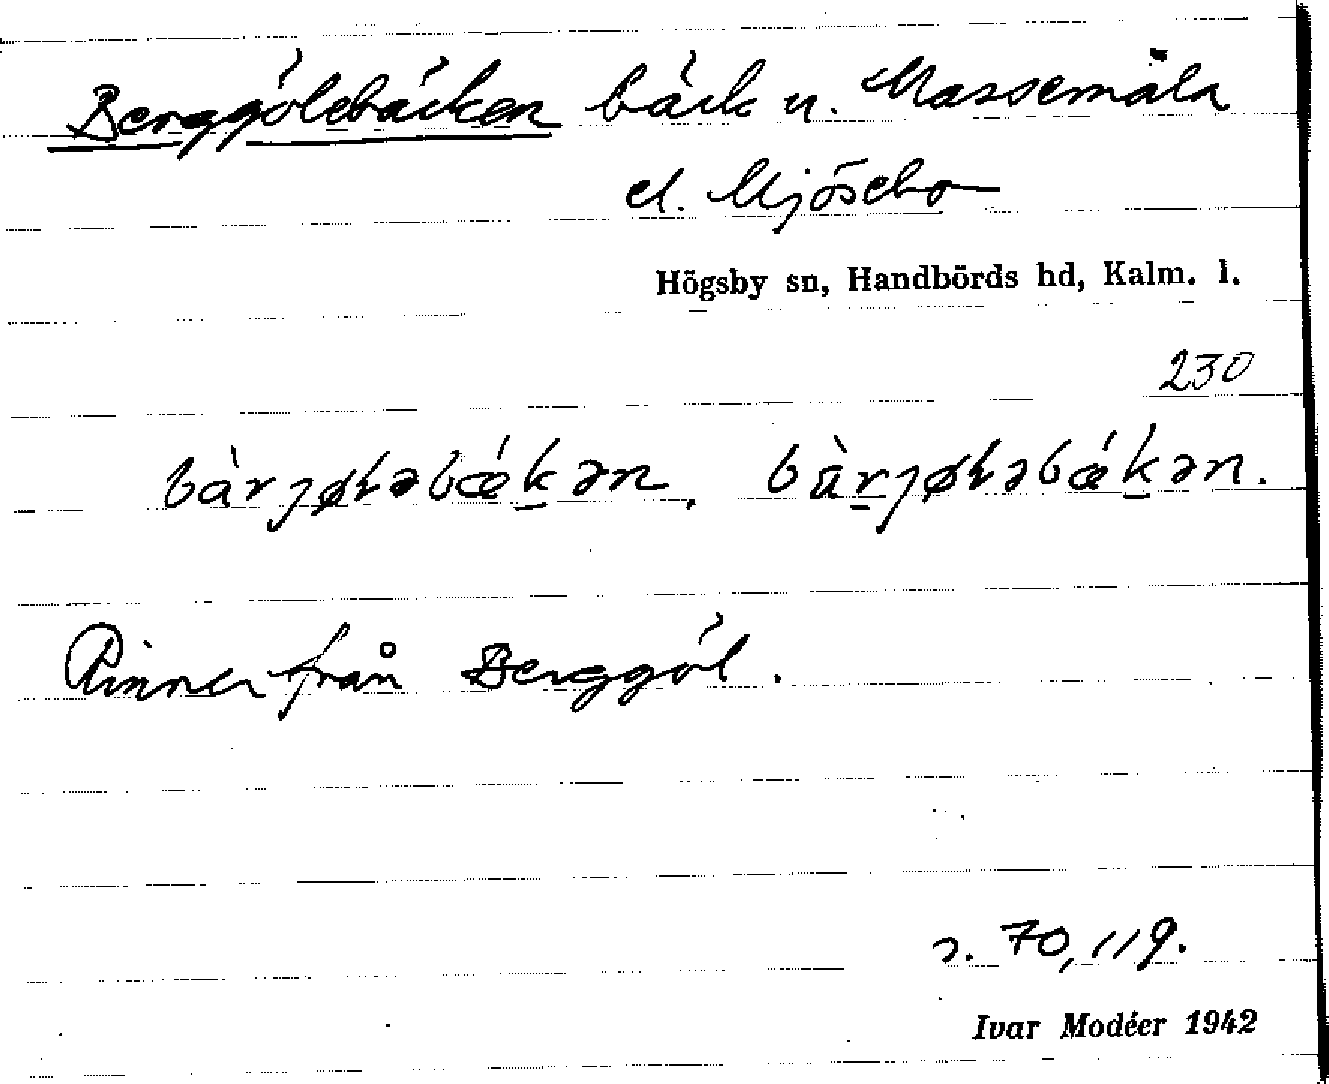 Berggölebäcken bäck u. Massemåla
el. Mjösebo
Högsby sn, Handbörds hd, Kalm. l.
230
bàrȷøɫəbǽk̲ən, bàr̲ȷøɫəbǽk̲ən.
Rinner från Berggöl.
s. 70, 119.
Ivar Modéer 1942